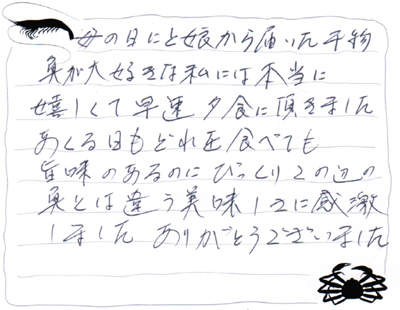 母の日にと娘から届いた干物
魚が大好きな私には本当に
嬉しくて早速夕食に頂きました
あくる日もどれを食べても
旨味のあるのにびっくりこの辺の
魚とは違う美味しさに感激
しました ありがとうございました